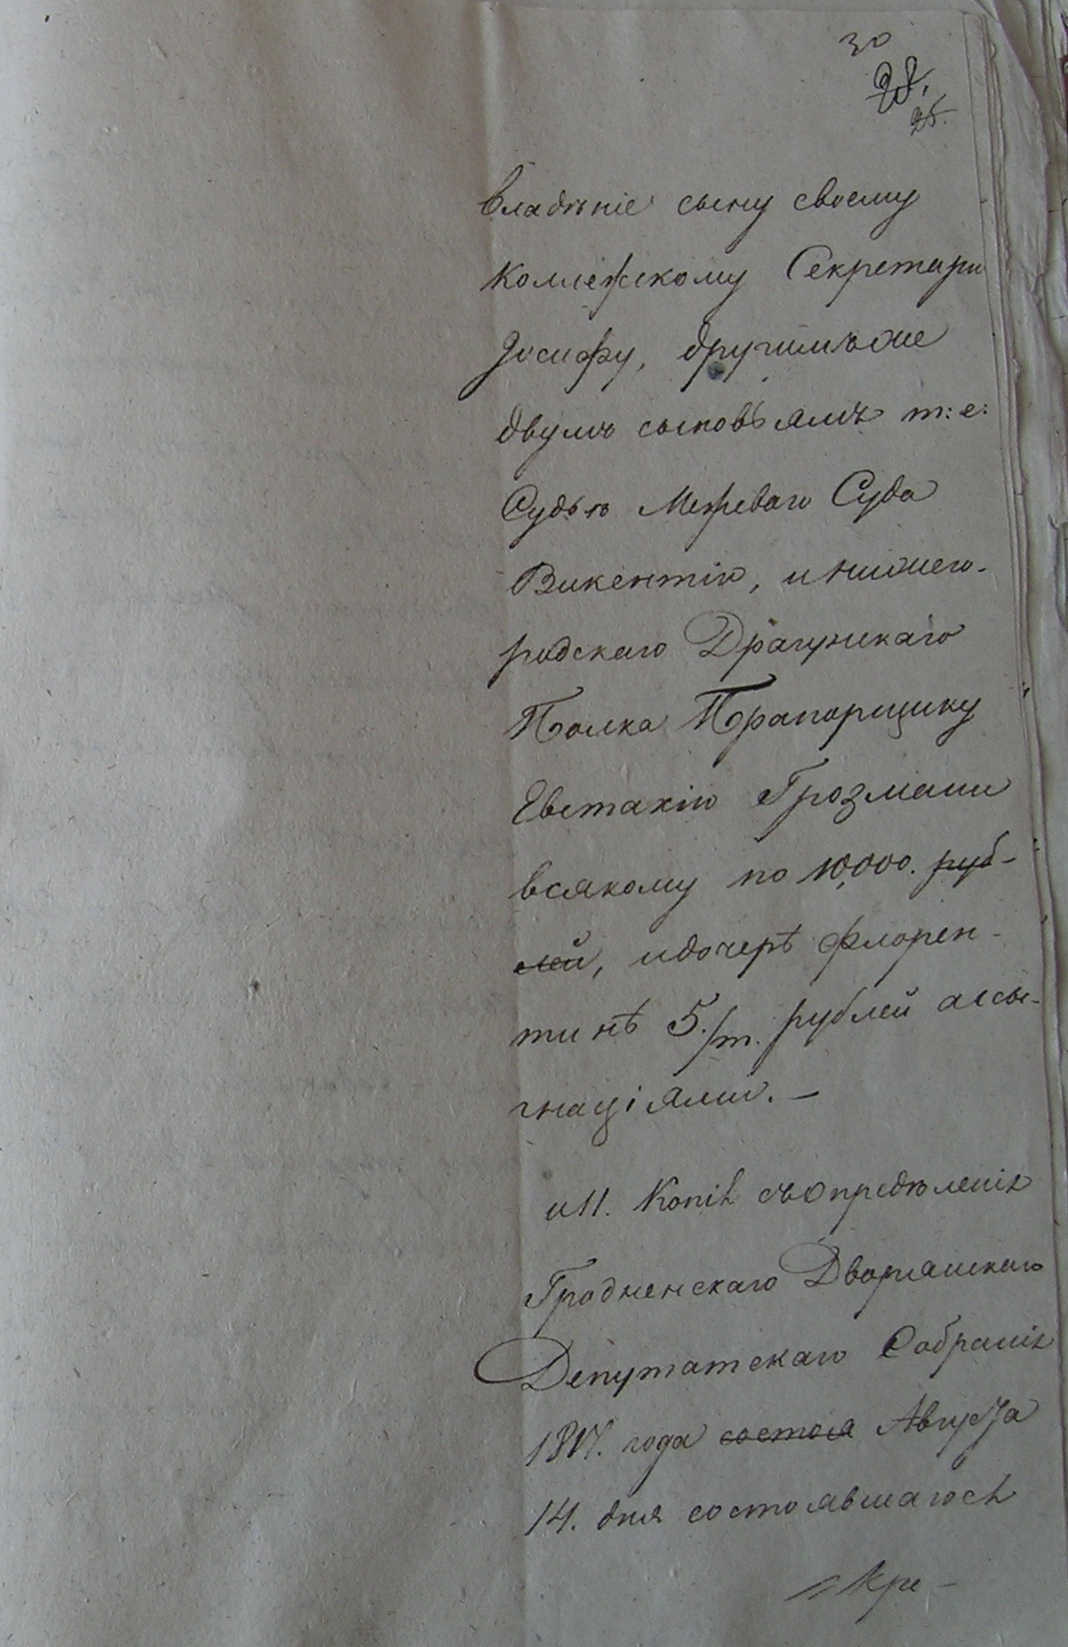 30
28.
25.
владѣніе сыну своему
Коллежскому Секретарю
Іосифу, другимъ же
двумъ сыновьямъ т: е:
Судью Межеваго Суда
Викентію, и нижего-
родскаго Драгунскаго
Полка Прапорщику
Евстахію Грозмани
всякому по 10,000. руб-
лей, и дочерѣ Флорен-
тинѣ 5./т. рублей ассы-
гнаціями. —
и 11. Копія съ опредѣленія
Гродненскаго Дворянскаго
Депутатскаго Собранія
1817. года состоя Августа
14. дня состоявшагося